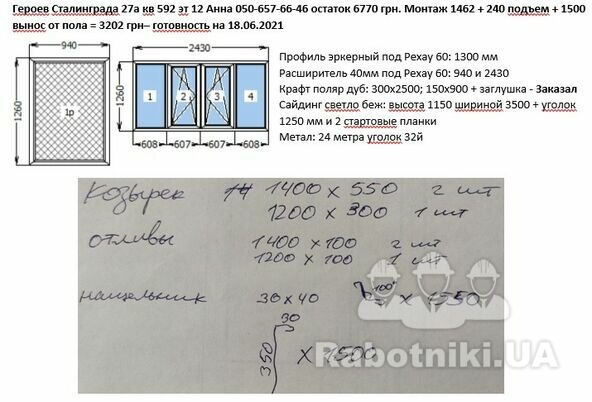 Героев Сталинграда 27а кв 592 эт 12 Анна 050-657-66-46 остаток 6770 грн. Монтаж 1462 + 240 подъем + 1500
вынос от пола = 3202 грн– готовность на 18.06.2021
940
1260
1р
2430
1260
1 2 3 4
608 607 607 608
Профиль эркерный под Рехау 60: 1300 мм
Расширитель 40мм под Рехау 60: 940 и 2430
Крафт поляр дуб: 300х2500; 150х900 + заглушка - Заказал
Сайдинг светло беж: высота 1150 шириной 3500 + уголок
1250 мм и 2 стартовые планки
Метал: 24 метра уголок 32й
Козырек 1400 х 550 2 шт
1200 х 300 1 шт
отливы 1400 х 100 2 шт
1200 х 100 1 шт
нащельник 30 х 40 100° х 1350
30
350 х 1500
Rabotniki.UA